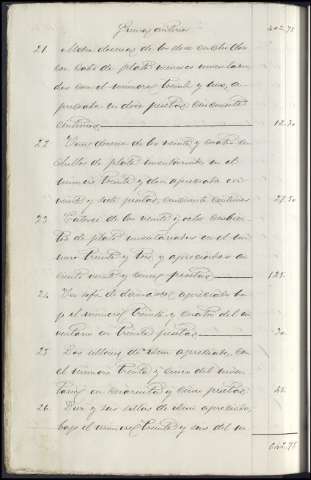 Suma anterior 402.75
21. Media docena de los doce cuchillos
con cabo de plata menores inventaria-
dos con el número treinta y uno, a-
preciada en doce pesetas cincuenta
céntimos 12.50
22. Una docena de los veinte y cuatro cu-
chillos de plata inventariados en el
número treinta y dos apreciada en
veinte y siete pesetas, cincuenta céntimos 27.50
23. Catorce de los veinte y ocho cubier-
tos de plata inventariados en el nú-
mero treinta y tres, y apreciados en
ciento veinte y cinco pesetas 125.
24. Un sofá de damasco, apreciado ba-
jo el número treinta y cuatro del in-
ventario en treinta pesetas 30.
25. Dos sillones de idem apreciados, con
el número treinta y cinco del inven-
tario en cuarenta y cinco pesetas 45.
26. Diez y seis sillas de idem apreciadas,
bajo el número treinta y seis del in-
642.75